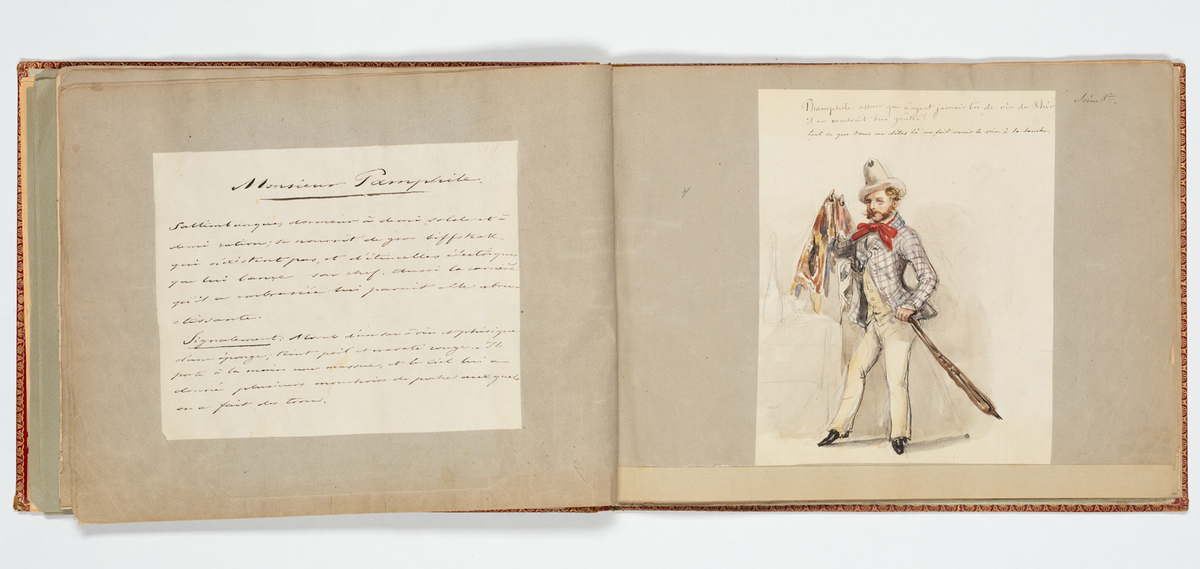 Monsieur Pamphile.
Saltimbanque, dormeur à demi solde et à
demi ration; se nourrit de gros biffsteak
qui n'existent pas, et d'étincelles électriques
que lui lance son chef. Aussi la carrière
qu'il a embrassée lui parait elle abru-
tissante.
Signalement: à vin et physique
d'une éponge, tout poil et cravate rouge. Il
porte à la main une massue, et le Ciel lui a
donné plusieurs mouchoirs de poche auxquels
on a fait des trous.
Pamphile assure que n'ayant jamais bu de vin du Rhin
il en voudrait bien goûter!
tout ce que vous me dites là me fait venir le vin à la bouche